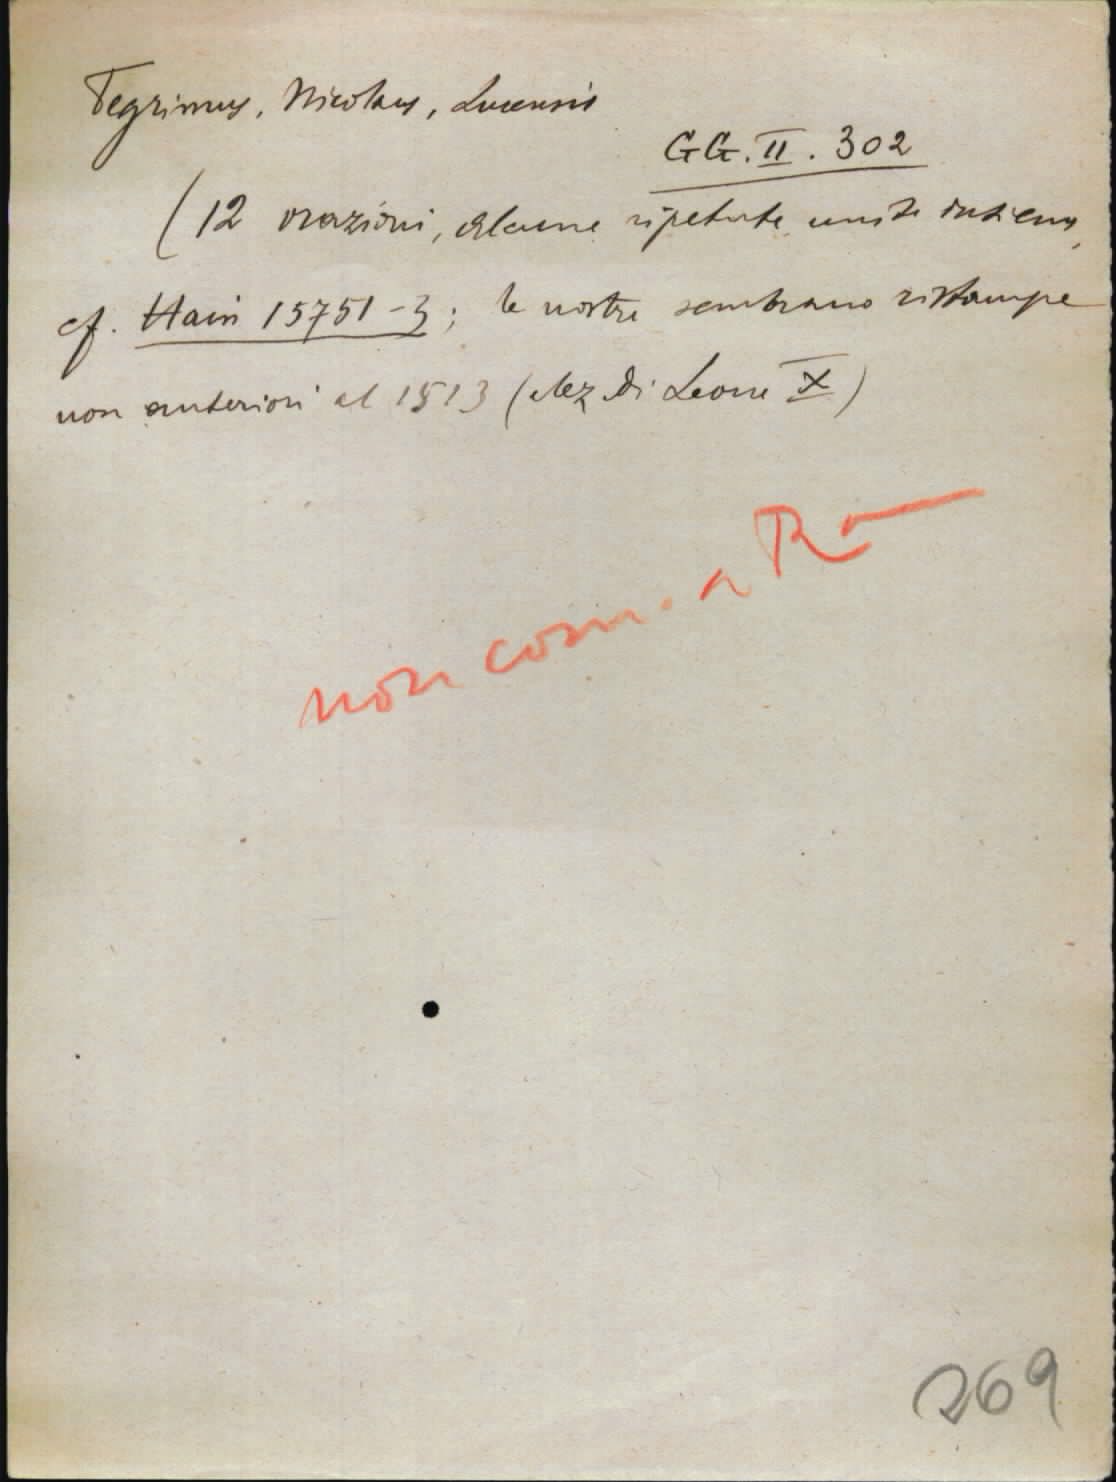 Tegrimus, Nicolaus, Lucensis
GG. II. 302
(12 orazioni, alcune ripetute unite insieme,
cf. Hain 15751-3; le nostre sembrano ristampe
non anteriori al 1513 (elez di Leone X)
non com. a R
269